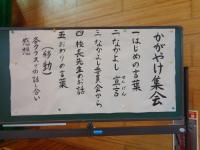 かがやけ集会
一 はじめの言葉
二 なかよし宣言
せんげん
三 なかよし委員会から
四 校長先生のお話
五 おわりの言葉
(移動)
各クラスでの話し合い
感想